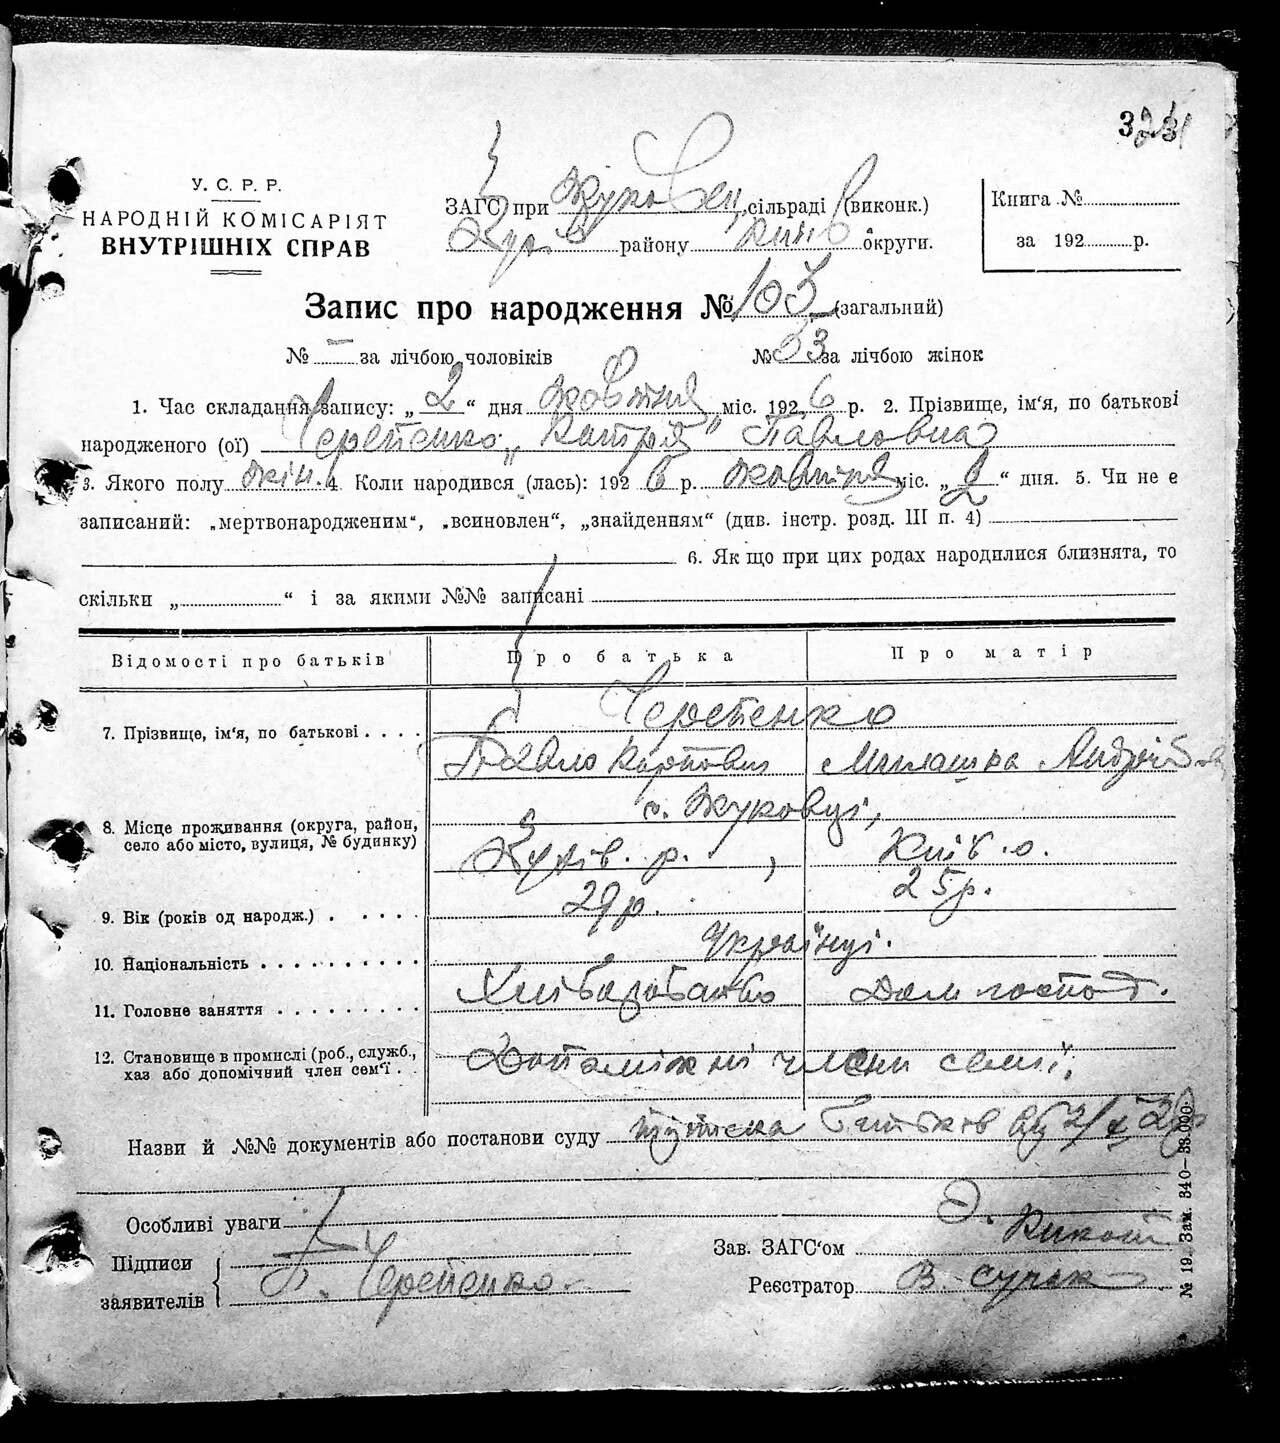 У. С. Р. Р.
НАРОДНІЙ КОМІСАРІЯТ
ВНУТРІШНІХ СПРАВ
ЗАГС при Жуковец. сільраді (виконк.)
району Київ округи.
Книга №
за 192 р.
Запис про народження № 103 (загальний)
№ – за лічбою чоловіків № 53 за лічбою жінок
1. Час складання запису: „ 2 “ дня жовтня міс. 192 6 р. 2. Прізвище, ім'я, по батькові
народженого (ої) Черепенко „Катря“ Павловна
3. Якого полу жін. 4. Коли народився (лась): 192 6 р. жовтня міс. „ 2 “ дня. 5. Чи не є
записаний: „мертвонародженим“, „всиновлен“, „знайденням“ (див. інстр. розд. III п. 4)
6. Як що при цих родах народилися близнята, то
скільки „ “ і за якими №№ записані
Відомості про батьків Про батька Про матір
7. Прізвище, ім'я, по батькові Черепенко
Павло Карпович Милашка Андріївна
8. Місце проживання (округа, район,
село або місто, вулиця, № будинку)
с. Жуковці,
р. , Київ. о.
9. Вік (років од народж.) 29 р. 25 р.
10. Національність Українці.
11. Головне заняття Хліборобство Дом господ.
12. Становище в промислі (роб., служб.,
хаз або допомічний член сем'ї
Допоміжні члени семії.
Назви й №№ документів або постанови суду батьків від 2/X 26 р
Особливі уваги
Підписи
заявителів
П. Черепенко
Зав. ЗАГС'ом
Реєстратор В.
№ 19. Зам. 340—33.000.